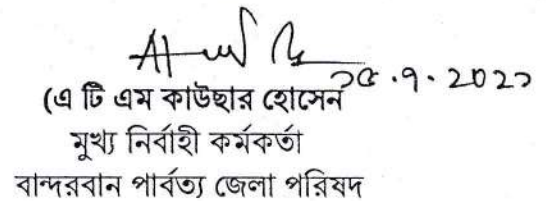 ২৫.৭.২০২১
(এ টি এম কাউছার হোসেন
মুখ্য নির্বাহী কর্মকর্তা
বান্দরবান পার্বত্য জেলা পরিষদ